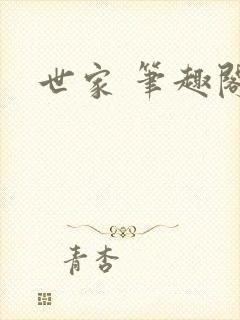 世家 筆趣閣
青杏